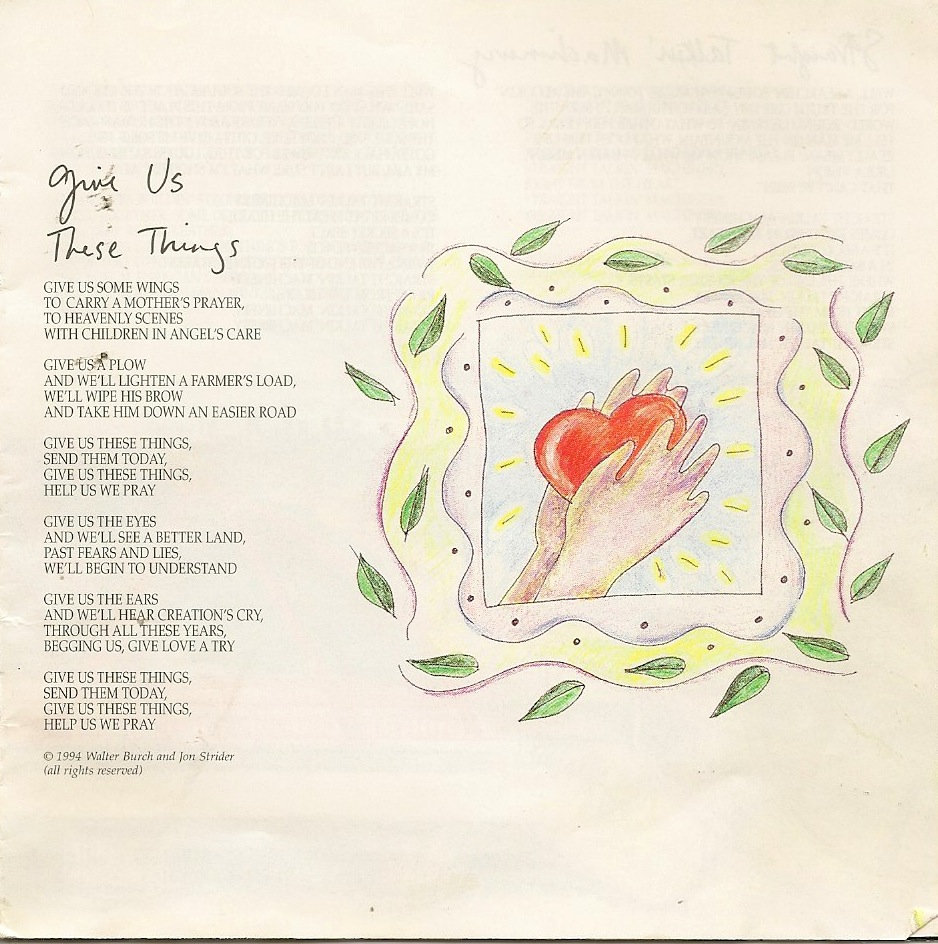 Give Us
These Things
GIVE US SOME WINGS
TO CARRY A MOTHER'S PRAYER,
TO HEAVENLY SCENES
WITH CHILDREN IN ANGEL'S CARE
GIVE US A PLOW
AND WE'LL LIGHTEN A FARMER'S LOAD,
WE'LL WIPE HIS BROW
AND TAKE HIM DOWN AN EASIER ROAD
GIVE US THESE THINGS,
SEND THEM TODAY,
GIVE US THESE THINGS,
HELP US WE PRAY
GIVE US THE EYES
AND WE'LL SEE A BETTER LAND,
PAST FEARS AND LIES,
WE'LL BEGIN TO UNDERSTAND
GIVE US THE EARS
AND WE'LL HEAR CREATION'S CRY,
THROUGH ALL THESE YEARS,
BEGGING US, GIVE LOVE A TRY
GIVE US THESE THINGS,
SEND THEM TODAY,
GIVE US THESE THINGS,
HELP US WE PRAY
© 1994 Walter Burch and Jon Strider
(all rights reserved)